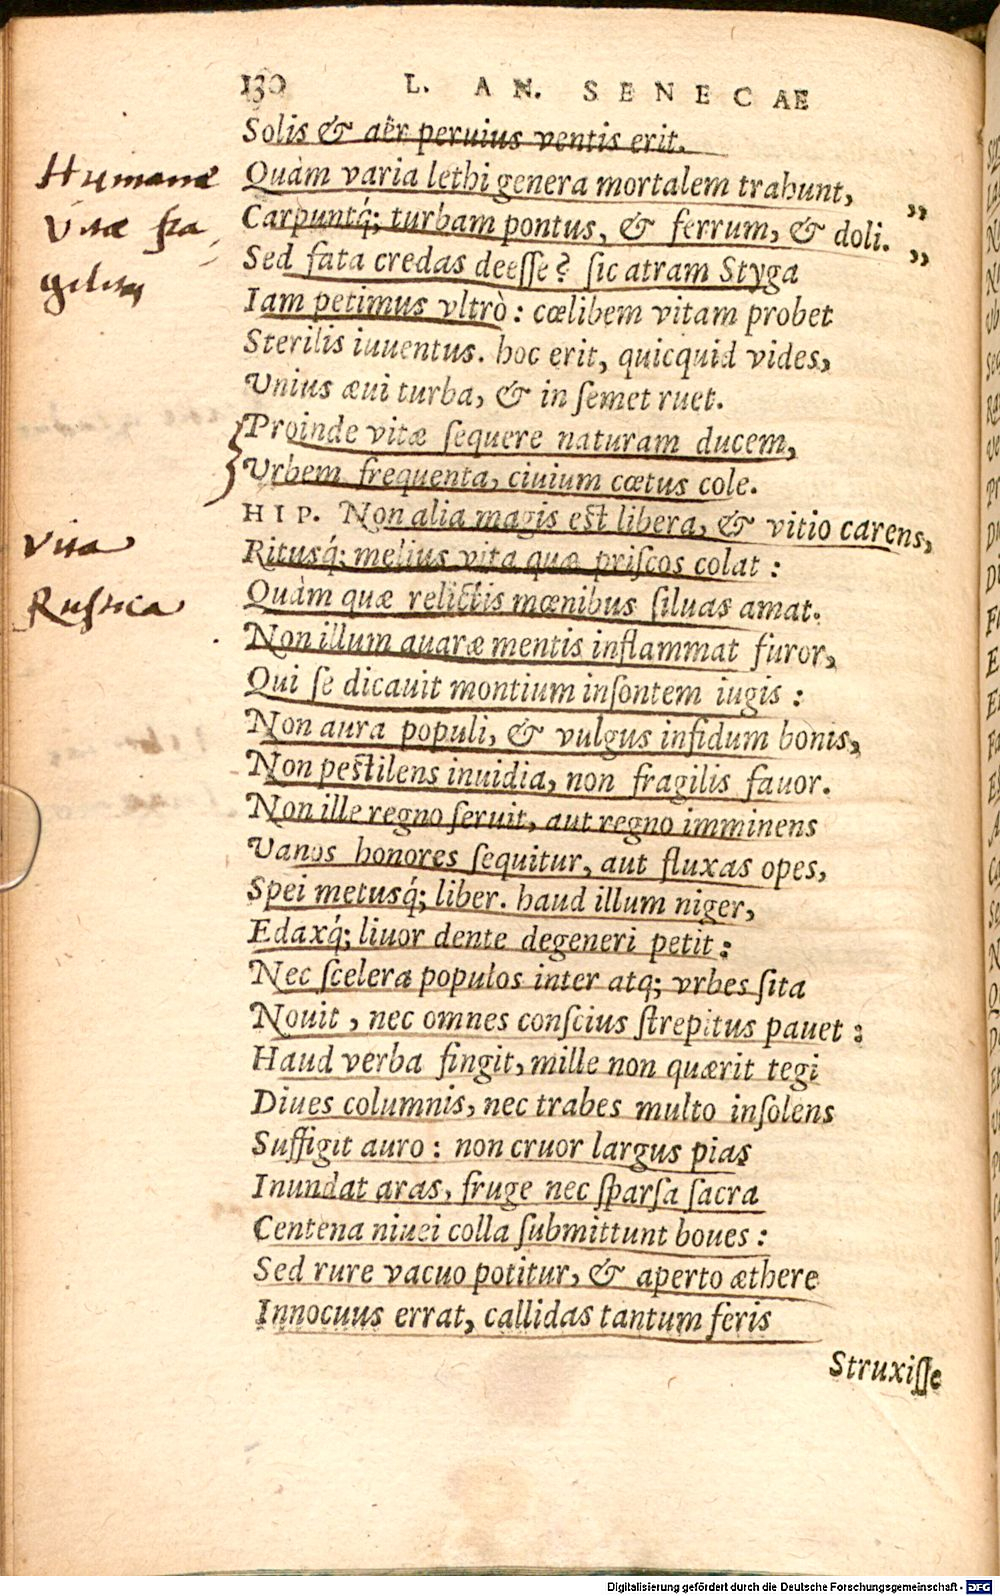 130 L. AN. SENECAE
Solis & aër peruius ventis erit.
Humanæ
Quàm varia lethi genera mortalem trahunt, „
Vitæ fra
Carpuntq́; turbam pontus, & ferrum, & doli. „
gilitas
Sed fata credas deeſſe? ſic atram Styga
Iam petimus vltrò: cœlibem vitam probet
Sterilis iuuentus. hoc erit, quicquid vides,
Vnius æui turba, & in ſemet ruet.
Proinde vitæ ſequere naturam ducem,
Vrbem frequenta, ciuium cœtus cole.
HIP. Non alia magis eſt libera, & vitio carens,
Vita
Ritusq́; melius vita quæ priſcos colat:
Rustica
Quàm quæ relictis mœnibus ſiluas amat.
Non illum auaræ mentis inflammat furor,
Qui ſe dicauit montium inſontem iugis:
Non aura populi, & vulgus infidum bonis,
Non peſtilens inuidia, non fragilis fauor.
Non ille regno ſeruit, aut regno imminens
Vanos honores ſequitur, aut fluxas opes,
Spei metusq́; liber. haud illum niger,
Edaxq́; liuor dente degeneri petit:
Nec ſcelera populos inter atq; vrbes ſita
Nouit, nec omnes conſcius ſtrepitus pauet:
Haud verba fingit, mille non quærit tegi
Diues columnis, nec trabes multo inſolens
Suffigit auro: non cruor largus pias
Inundat aras, fruge nec ſparſa ſacra
Centena niuei colla ſubmittunt boues:
Sed rure vacuo potitur, & aperto æthere
Innocuus errat, callidas tantum feris
Struxiſſe
Digitalisierung gefördert durch die Deutsche Forschungsgemeinschaft - DFG